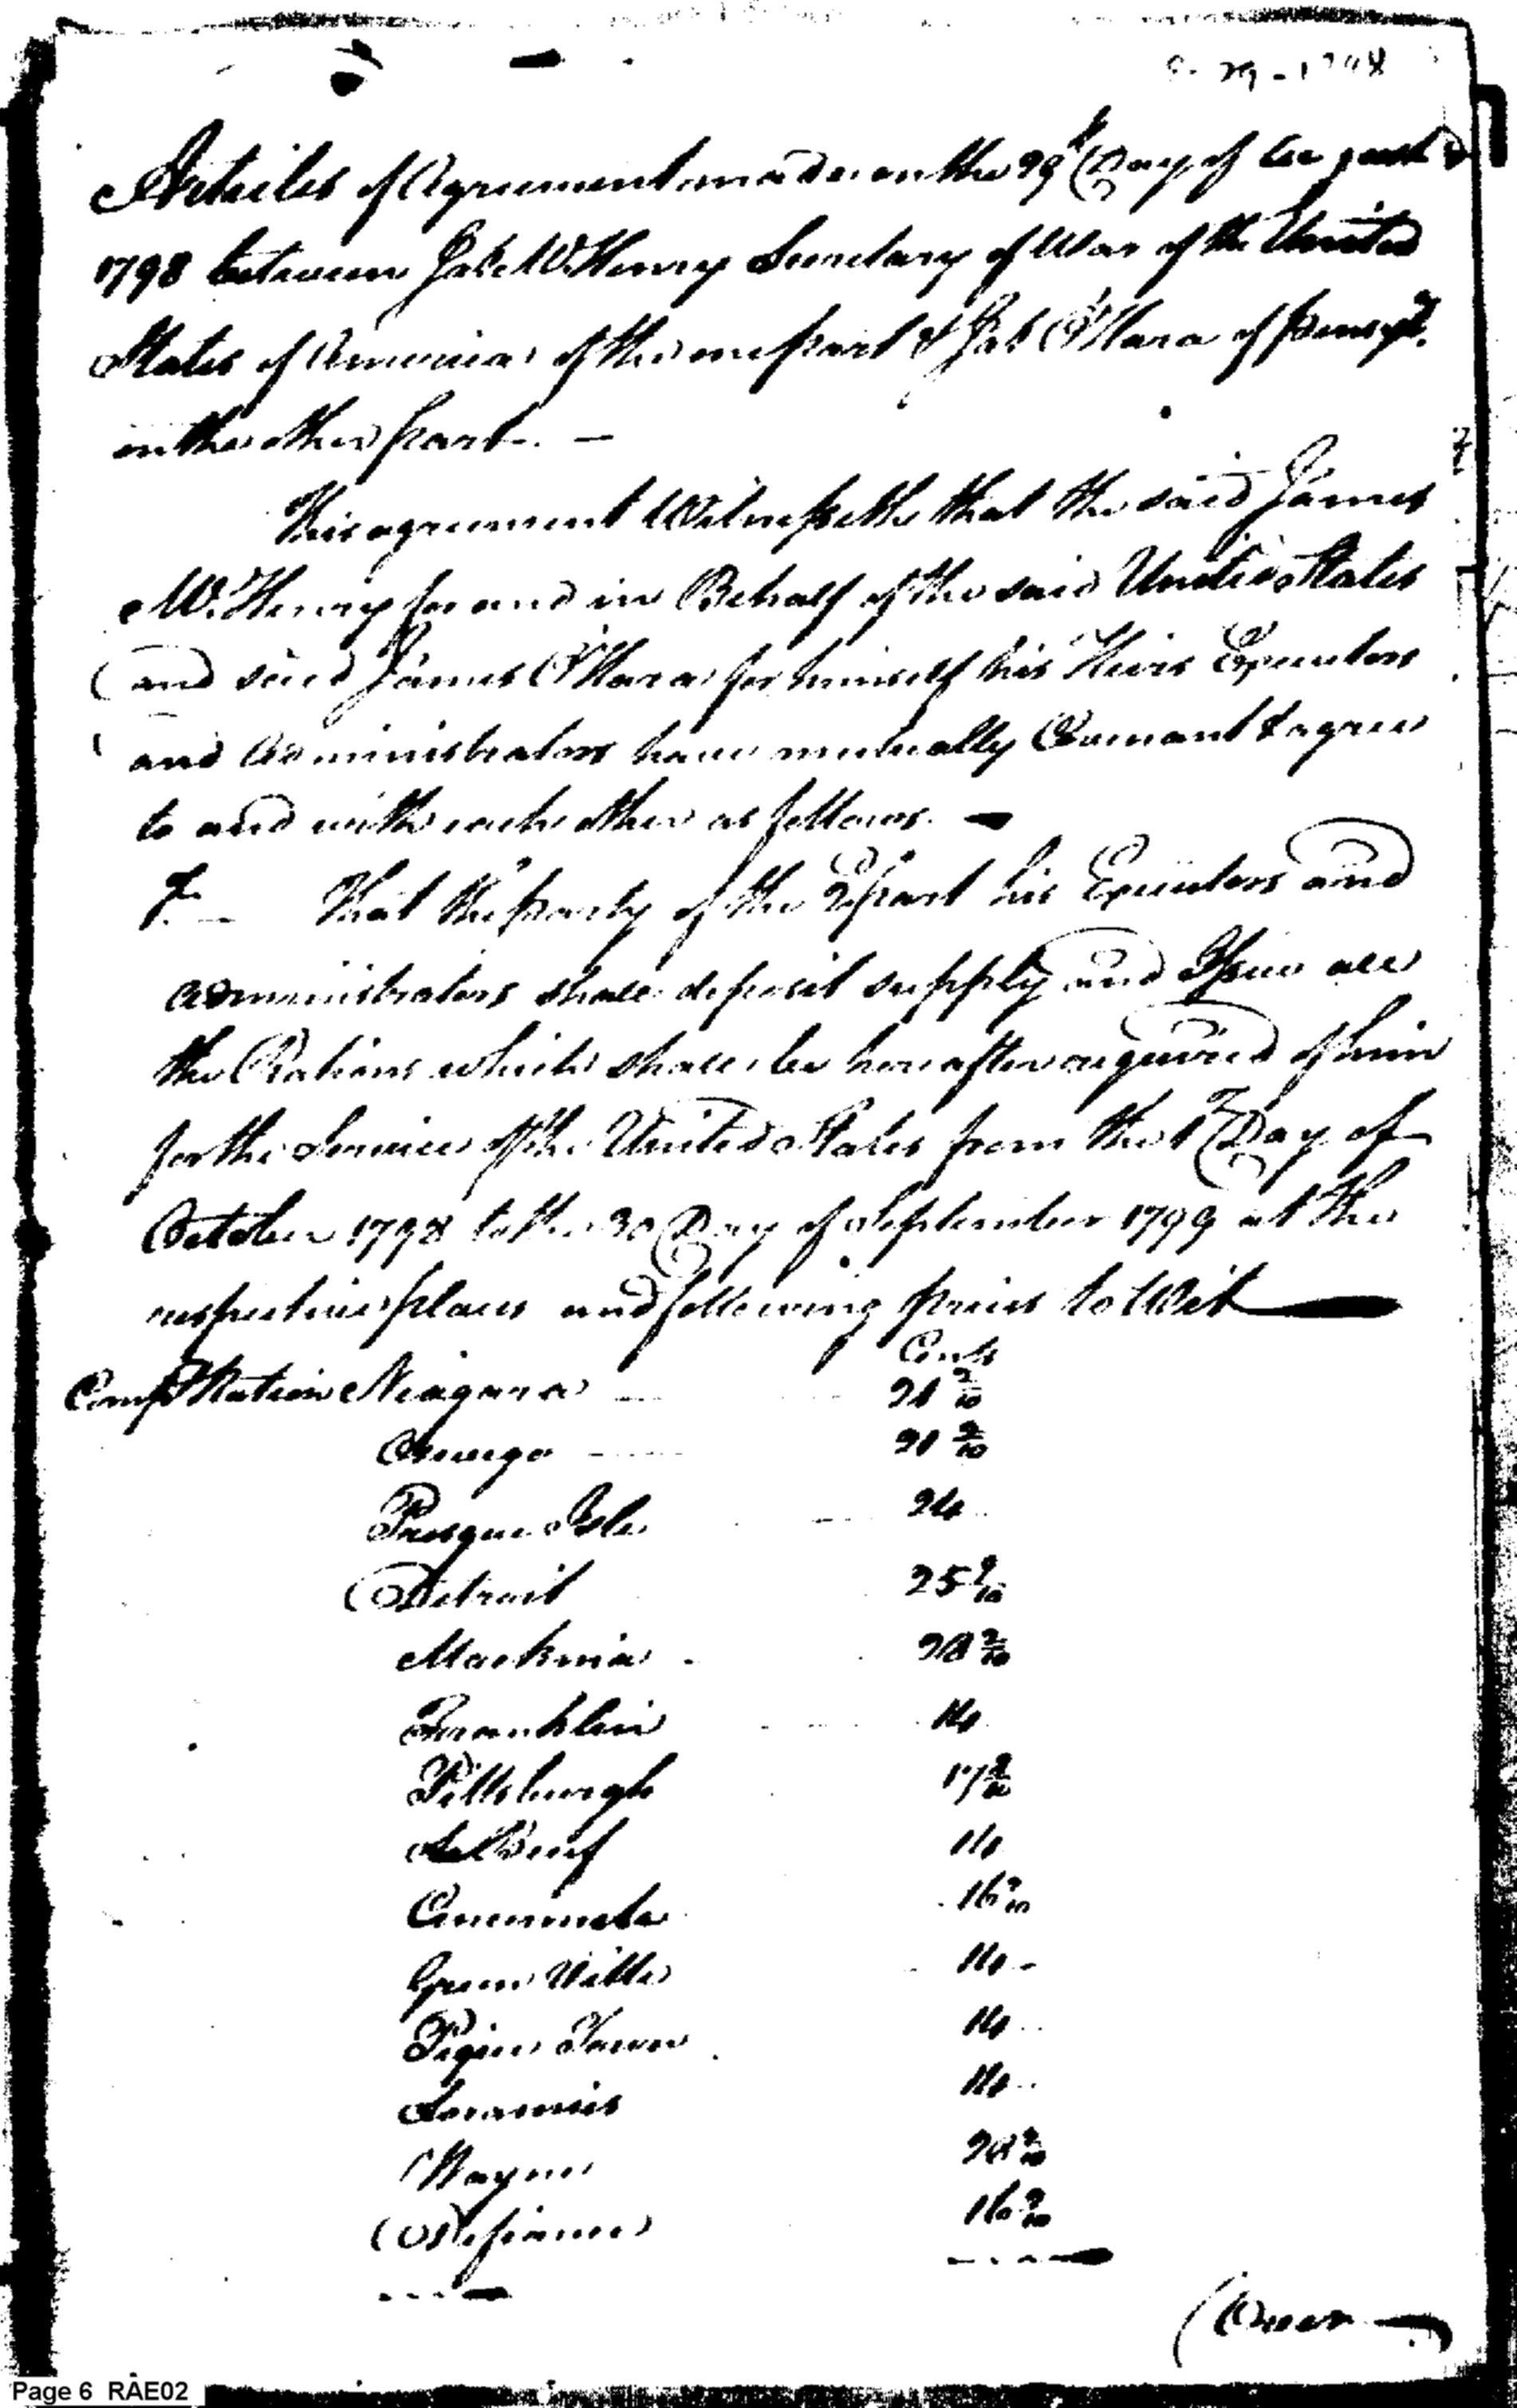 29 - 1798
Articles of Agreement made on the 29th Day of August
1798 between Jas. McHenry Secretary of War of the United
States of America of the one part & Jas O'Hara of Pensyla.
on the other part. —
This agreement Witnesseth that the said James
McHenry for and in Behalf of the said United States
and said James O'Hara for himself his Heirs Executors
and Administrators have mutually Covenant & agree
to and with each other as follows. —
That the party of the 2d part his Executors and
administrators shall deposit supply and Issue all
the Rations which shall be hereafter required of him
for the Service of the United States from the 1st Day of
October 1798 to the 30 Day of September 1799 at the
respective places and following prices to Wit —
Cents
Compt Ration Niagara — 21 2/10
Oswego — 21 2/10
Presque Isle 24
Detroit 25 2/10
Mackina 28 2/10
Franklin 14
Pittsburgh 17 2/10
Le Beuf 14
Cincinnata 16 2/10
Green Ville 14 -
Pique Town 14
Loramies 14
Wayne 28 2/10
Defiance 16 2/10
(Over —
Page 6 RAE02